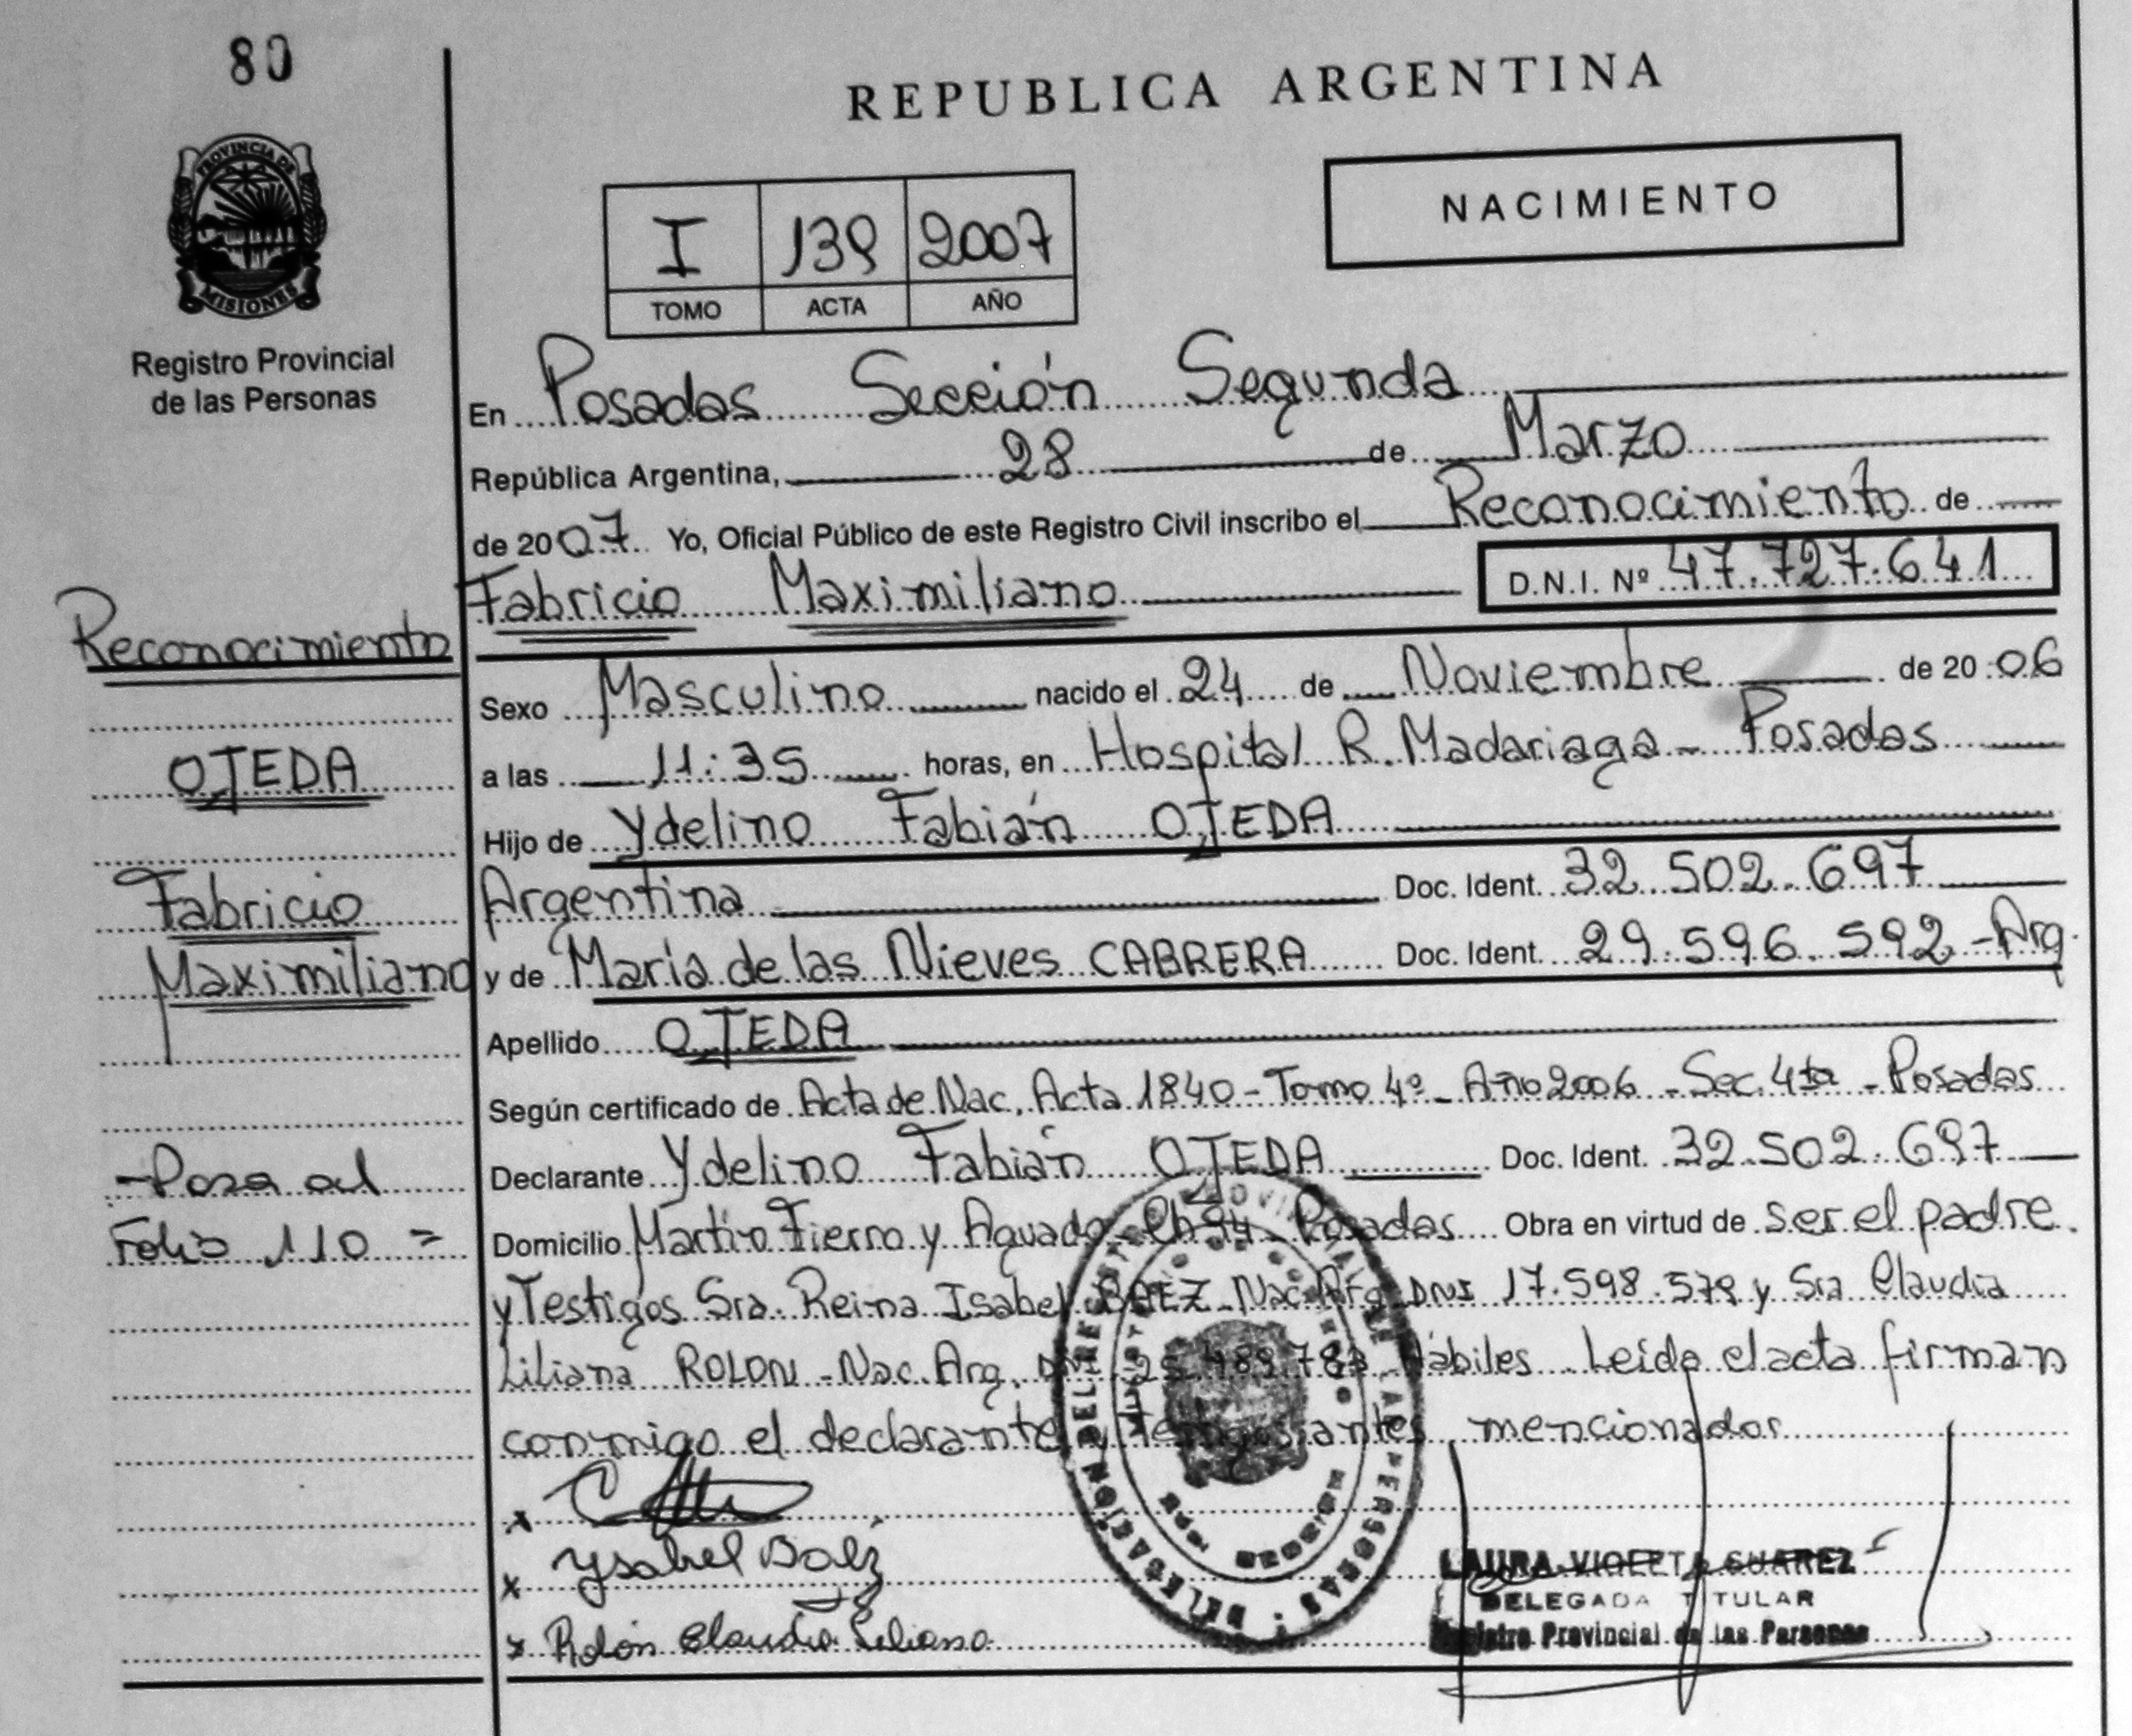 80
REPUBLICA ARGENTINA
PROVINCIA DE
MISIONES
Registro Provincial
de las Personas
NACIMIENTO
I 139 2007
TOMO ACTA AÑO
En Posadas Sección Segunda
República Argentina, 28 de Marzo
de 2007 Yo, Oficial Público de este Registro Civil inscribo el Reconocimiento de
Fabricio Maximiliano D.N.I. Nº 47.727.641
Reconocimiento
OJEDA
Fabricio
Maximiliano
-Pasa al
Folio 110 =
Sexo Masculino nacido el 24 de Noviembre de 2006
a las 11:35 horas, en Hospital R. Madariaga - Posadas
Hijo de Ydelino Fabián OJEDA
Argentina Doc. Ident. 32.502.697
y de María de las Nieves CABRERA Doc. Ident. 29.596.592 - Arg.
Apellido OJEDA
Según certificado de Acta de Nac. Acta 1840 - Tomo 4º - Año 2006 - Sec. 4ta - Posadas
Declarante Ydelino Fabián OJEDA Doc. Ident. 32.502.697
Domicilio Martín Fierro y Aguado - Ch 94 - Posadas Obra en virtud de ser el padre.
y Testigos Sra. Reina Isabel BAEZ - Nac. Arg. DNI 17.598.579 y Sra Claudia
Liliana ROLON - Nac. Arg. Hábiles - Leida el acta firman
conmigo el declarante y testigos antes mencionados
x
x Ysabel Baez
x Rolón Claudia Liliana
LAURA VIOLETA SUAREZ
DELEGADA TITULAR
Registro Provincial de las Personas